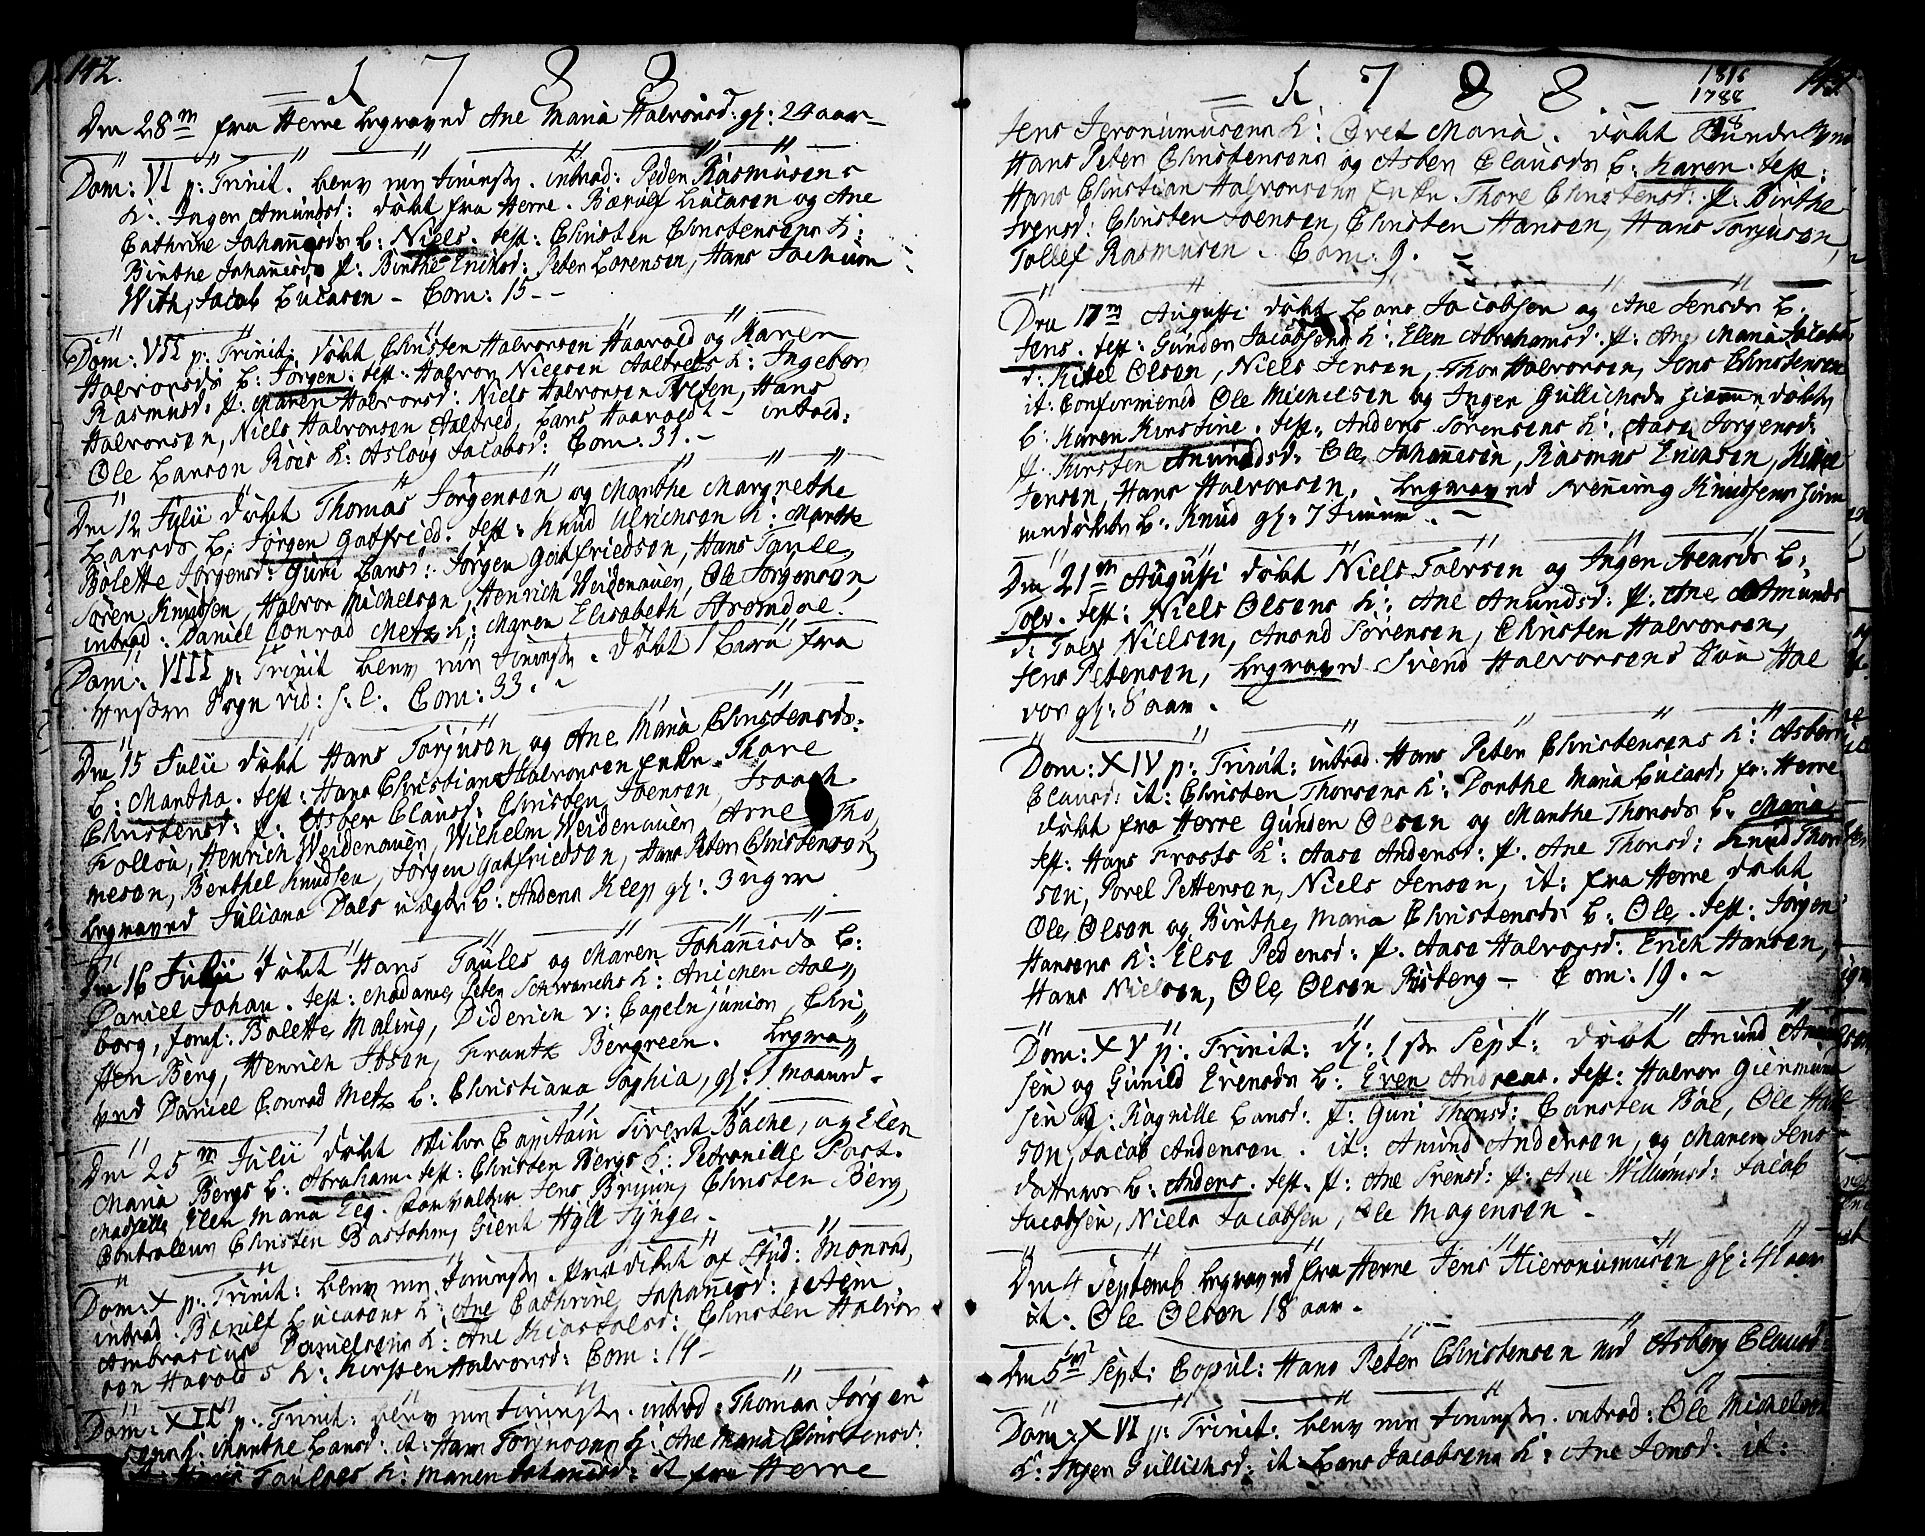 142.
1 7 8 8
Den 28m fra Herre begraved Ane Maria Halvorsd: gl: 24 aar
Dom: VI p: Trinit. introd: Peder Rasmusens
K: Ingen Amundsd: døbt fra Herre. Barulf Lucasen og Ane
Cathrine Johannisds b: Niels. test: Christen Christensens K:
Birthe Johannisds p: Birthe Erichsd: Peter Lorensen, Hans Jochum
With, Jacob Lucasen - Com: 15 - -
Dom: VII p: Trinit: døbt Christen Halvorsen Haavold og Karen
Halvorsds b: Jørgen. test: Halvor Nielsen Aalbreds K: Ingebor
Rasmusd: p: Maren Halvorsd: Niels Halvorsen Treten, Hans
Halvorsen, Niels Halvorsen Aalbred, Hans Haavold - introd:
Ole Hansen Røes K: Aslovg Jacobsd: Com: 31. -
Den 12 Julii døbt Thomas Jørgensen og Marthe Margrethe
Hansds b: Jørgen Gotfried. test: Knud Ulrichsen K: Marthe
Bolette Jørgensd: Guri Hansd: Jørgen Gotfriedsen, Hans Taule,
Søren Knudsen, Halvor Michelsen, Henrich Weidenauer, Ole Jørgensen
introd: Daniel Conrad Metz K: Maren Elisabeth Strømdal.
Dom: VIII p: Trinit døbt 1 barn fra
Sogn vid: s. l. Com: 33. -
Den 15 Julii døbt Hans Torjusen og Ane Maria Christensds:
b: Martha. test: Hans Christian Halvorsen Enke Thore
Christensd: p: Asber Clausd: Christen Joensen, Isaach
Kolloü, Henrich Weidenauer, Wilhelm Weidenauer, Arne Tho
mesen, Berthel Knudsen, Jørgen Gotfriedsen, Hans Peter Christensen
begraved Juliana Dals uægte b: Anders Kleep gl: 3 uger
Den 16 Julii døbt Hans Taules og Maren Johannisds b:
Daniel Johan. test: Madame Peter Schwenchs K: Anichen Aal
borg, Jomf: Bolette Maling, Diderich v: Capeln junior,
Herr Berg, Henrich Ibsen, Frantz Bergreen. begra
ved Daniel Conrad Metz b: Christiana Sophia, gl: 1 maaned.
Den 25m Julii døbt Capitain Sivert Bache, og Elen
Maria Bergs b: Abraham. test: Christen Bergs K: Petronille Post.
Madselle Elen Maria Leg. Forvalter Jens Bruun, Christen Berg,
Controlleur Christen Bastholm, Gient Hÿll Lÿnge.
Dom: X p: Trinit: prædiket af Stud: Monrad,
introd: Barulf Lucasens K: Ane Cathrine Johannisd:
Ambrosius Danielsens K: Ane Kiøstolsd: Christen Halvor
sen Havolds K: Kirsten Halvorsd: Com: 14 -
Dom: XII p: Trinit: introd: Thomas Jørgen
sens K: Marthe Hansd: it: Hans Torjusens K: Ane Maria Christensd:
it: Hans Taules K: Maren Johannisd: it fra Herre
1 7 8 8. -
1816
1788
143.
Jens Jeronimusens K: Maria. døbt
Hans Peter Christensens og Asber Clausds b: Karen. test:
Hans Christian Halvorsens Enke Thore Christensd: p: Birthe
Svensd: Christen Joensen, Christen Hansen, Hans Torjusen,
Tollef Rasmusen. Com: 9.
Den 17m Augusti døbt Hans Jacobsen og Ane Jensds b:
Jens. test: Gunder Jacobsens K: Elen Abrahamsd: p: Ane Maria Jacobs
d: Kitel Olsen, Niels Jensen, Thor Halvorsen, Jens Christensen
it: Confirmered Ole Michelsen og Inger Gullichsds hiemmedøbte
b: Karen Kirstine. test: Anders Sørensens K: Aasa Jørgensd:
p: Kirsten Anundsd: Ole Johannesen, Rasmus Erichsen,
Jensen, Hans Halvorsen. begraved Svenning Knudsens hiem
medøbte b: Knud gl: 7 Timer. -
Den 21m Augusti døbt Niels Tolvsen og Ingen Svensds b:
Tolv. test: Niels Olsens K: Ane Anundsd: p: Ane Amunds
d: Tolv Nielsen, Anond Sørensen, Christen Halvorsen,
Jens Petersen, begraved Svend Halvorsens Søn Hal
vor gl: 8 aar.
Dom: XIV p: Trinit: introd. Hans Peter Christensens K: Asber
Clausd: it: Christen Thorsens K: Dorthe Maria Lucasd: fr: Herre
døbt fra Herre Gunder Olsen og Marthe Thorsds b: Maria
test: Hans Frosts K: Aasa Andersd: p. Ane Thorsd: Knud Thor
sen, Povel Pettersen, Niels Jensen, it: fra Herre døbt
Ole Olsen og Birthe Maria Christensds b: Ole. test: Jørgen
Hansens K: Else Pedersd: p. Aasa Halvorsd: Erich Hansen,
Hans Nielsen, Ole Olsen Riisberg - Com: 19. -
Dom: XV p: Trinit: Sept: døbt Anund
sen og Gunild Evensds b: Even Andreas. test: Halvor Giermund
sen K: Ragnille Hansd: p: Guri Thorsd: Carsten Bøe, Ole
son, Jacob Andersen. it: Anund Andersen, og Maren Jens
datters b: Anders. test: p: Ane Svensd: p: Ane Williumsd: Jacob
Jacobsen, Niels Jacobsen, Ole Mogensen -
Den 4 Septemb begraved fra Herre Jens Hieronimusen gl: 41 aar
it: Ole Olsen 18 aar.
Den 5m Sept: Copul: Hans Peter Christensen med Asberg Clausd:
Dom: XVI p: Trinit: introd: Ole Michelsens
K: Ingen Gullichsd: it: Hans Jacobsens K: Ane Jensd: it: